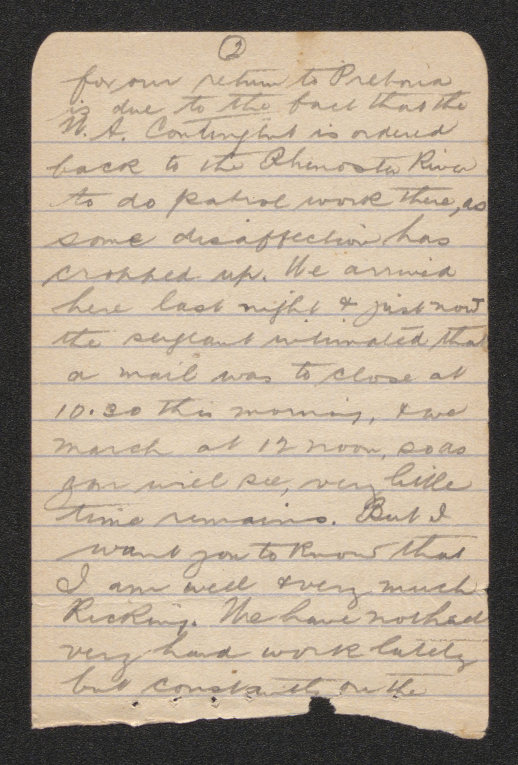 2
for our return to Pretoria
is due to the fact that the
W. A. Contingent is ordered
back to the Rhenoster River
to do patrol work there, as
some disaffection has
cropped up. We arrived
here last night & just now
the sergeant intimated that
a mail was to close at
10.30 this morning, & we
march at 12 noon, so as
you will see, very little
time remains. But I
want you to know that
I am well & very much
Kicking. We have not had
very hard work lately
but constantly on the